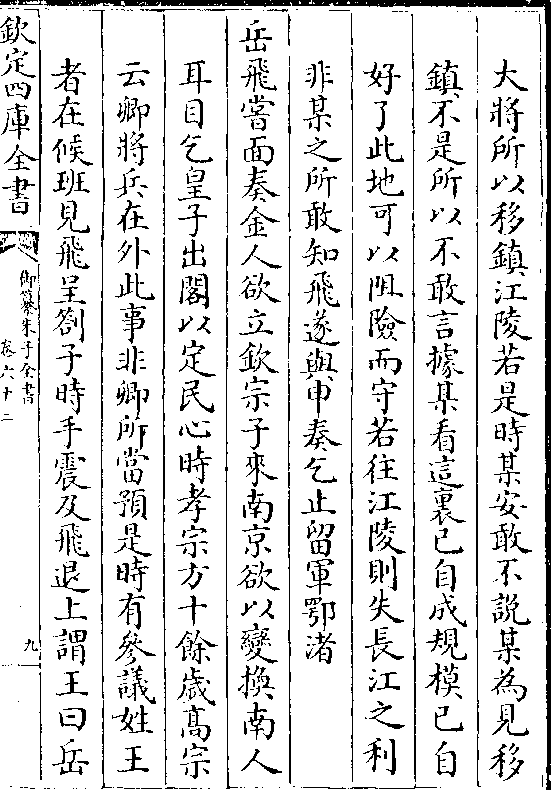 大將所以移鎮江陵若是時某安敢不說某為見移
鎮不是所以不敢言據某看這裏已自成規模已自
好了此地可以阻險而守若往江陵則失長江之利
非某之所敢知飛遂與申奏乞止留軍鄂渚
岳飛嘗面奏金人欲立欽宗子來南京欲以變換南人
耳目乞皇子出閣以定民心時孝宗方十餘歲髙宗
云卿將兵在外此事非卿所當預是時有參議姓王
者在候班見飛呈劄子時手震及飛退上謂王曰岳
欽定四庫全書
御纂朱子全書
卷六十二
九